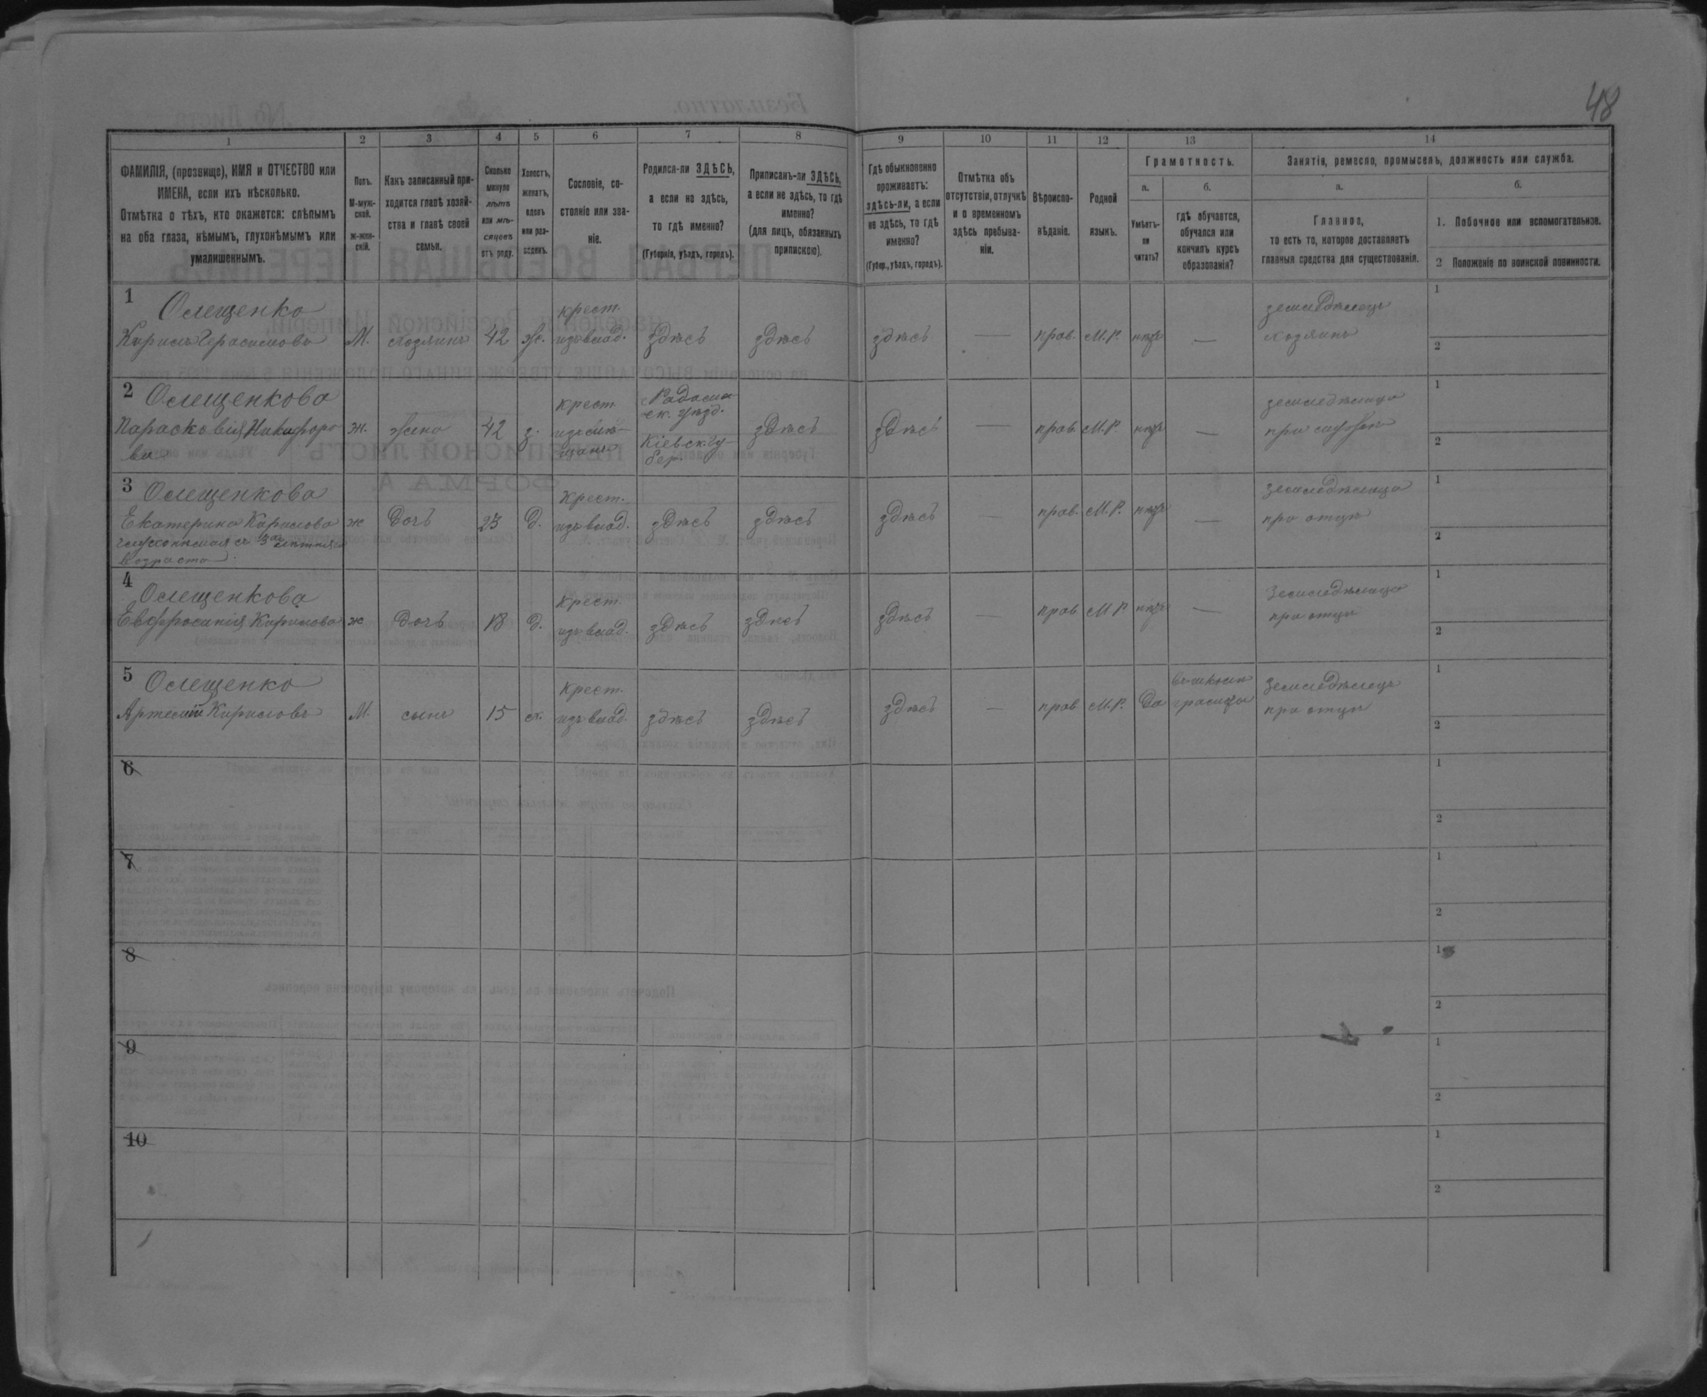 48
1
2
3
4
5
6
7
8
9
10
11
12
13
14
ФАМИЛІЯ, (прозвище), ИМЯ и ОТЧЕСТВО или
ИМЕНА, если ихъ нѣсколько.
Отмѣтка о тѣхъ, кто окажется: слѣпымъ
на оба глаза, нѣмымъ, глухонѣмымъ или
умалишеннымъ.
Полъ.
М-муж-
ской.
Ж-жен-
скій.
Какъ записанный при-
ходится главѣ хозяй-
ства и главѣ своей
семьи.
Сколько
минуло
лѣтъ
или мѣ-
сяцевъ
отъ роду.
Холостъ,
женатъ,
вдовъ
или раз-
веденъ.
Сословіе, со-
стояніе или зва-
ніе.
Родился-ли ЗДѢСЬ,
а если не здѣсь,
то гдѣ именно?
(Губернія, уѣздъ, городъ).
Приписанъ-ли ЗДѢСЬ,
а если не здѣсь, то гдѣ
именно?
(для лицъ, обязанныхъ
припискою).
Гдѣ обыкновенно
проживаетъ:
здѣсь-ли, а если
не здѣсь, то гдѣ
именно?
(Губер., уѣздъ, городъ).
Отмѣтка объ
отсутствіи, отлучкѣ
и о временномъ
здѣсь пребыва-
ніи.
Вѣроиспо-
вѣданіе.
Родной
языкъ.
Грамотность.
а.
Умѣетъ-
ли
читать?
б.
гдѣ обучается,
обучался или
кончилъ курсъ
образованія?
Занятія, ремесло, промыселъ, должность или служба.
а.
Главное,
то есть то, которое доставляетъ
главныя средства для существованія.
б.
1. Побочное или вспомогательное.
2 Положеніе по воинской повинности.
1
Олещенко
Кирилъ Герасимовъ М. хозяинъ 42 ж. крест. изъ влад. здѣсь здѣсь здѣсь — прав. М.Р. нѣтъ — земледѣлецъ
хозяинъ
1
2
2 Олещенкова
Парасковія Никифоро
ва ж. жена 42 з. крест. Радомы
ск. уѣзд.
Кіевск. гу
бер. здѣсь здѣсь прав. М.Р. нѣтъ — земледѣлица
при мужѣ
1
2
3 Олещенкова
Екатерина Кирилова ж дочь 23 д. крест. изъ влад. здѣсь здѣсь здѣсь — прав. М.Р. нѣтъ — земледѣлица
при отцѣ
глухонѣмая съ
возраста.
1
2
4
Олещенкова
Евфросинія Кирилова ж дочь 18 д. крест. изъ влад. здѣсь здѣсь здѣсь — прав М.Р. нѣтъ — земледѣлица
при отцѣ
1
2
5 Олещенко
Артемій Кириловъ М. сынъ 15 крест. изъ влад. здѣсь здѣсь здѣсь — прав М.Р. да земледѣлецъ
при отцѣ
1
2
6
1
2
7
1
2
8
1
2
9
1
2
10
1
2